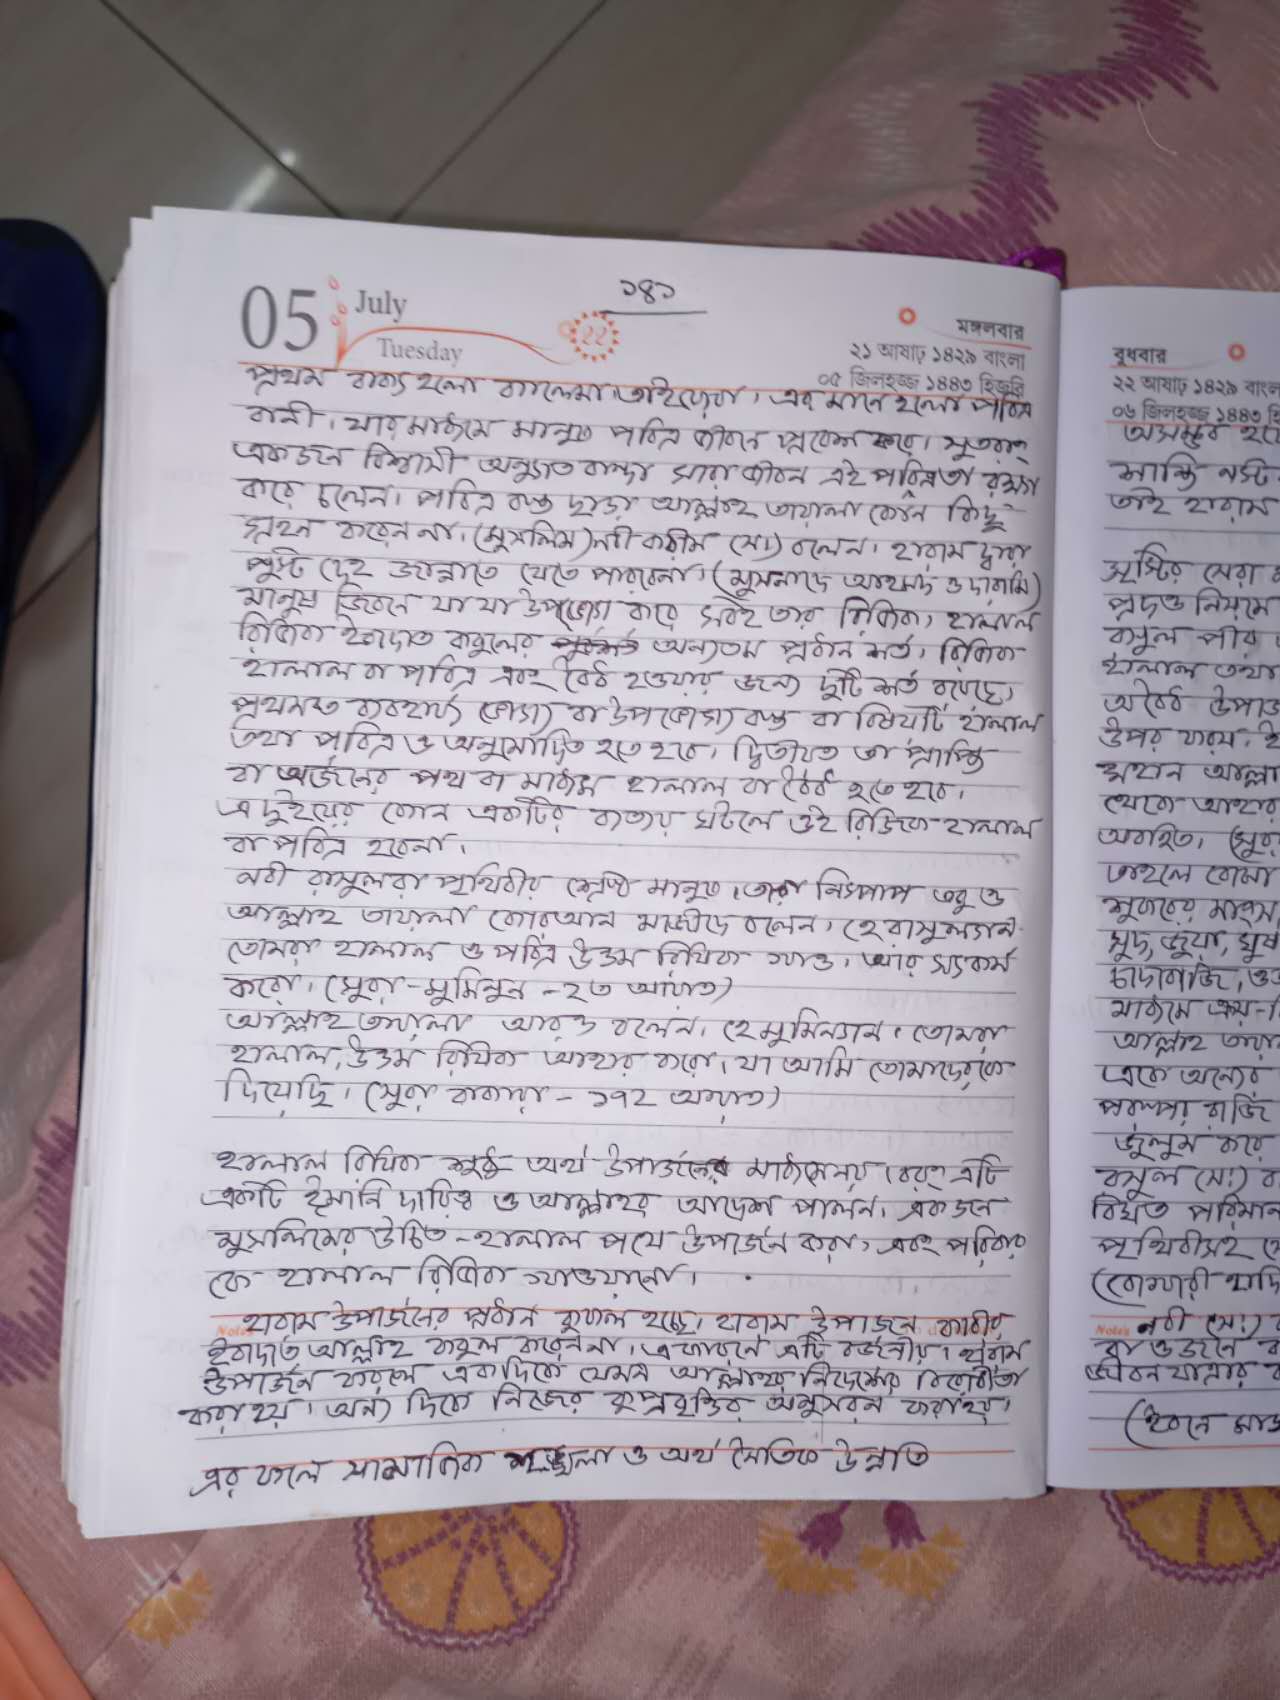 ১৪১
05 July
Tuesday
22
মঙ্গলবার
২১ আষাঢ় ১৪২৯ বাংলা
০৫ জিলহজ্জ ১৪৪৩ হিজরি
প্রথম বাক্য হলো কালেমা তাইয়্যেবা, এর মানে হলো পবিত্র
বানী, যার মাধ্যমে মানুষ পবিত্র জীবনে প্রবেশ করে। সুতরাং
একজন বিশ্বাসী অনুগত বান্দা সারা জীবন এই পবিত্রতা রক্ষা
করে চলেন। পবিত্র বস্তু ছাড়া আল্লাহ তায়ালা কোন কিছু
গ্রহন করেন না। (মুসলিম) নবী করীম (সাঃ) বলেন। হারাম দ্বারা
পুস্ট দেহ জান্নাতে যেতে পারবেনা। (মুসনাদে আহমদ ও দারামি)
মানুষ জিবনে যা যা উপভোগ করে সবই তার রিজিক, হালাল
রিজিক ইবাদত কবুলের অন্যতম প্রধান শর্ত, রিজিক
হালাল বা পবিত্র এবং বৈধ হওয়ার জন্য দুটি শর্ত রয়েছে,
প্রথমত ব্যবহার্য্য ভোগ্য বা উপভোগ্য বস্তু বা বিষয়টি হালাল
তথা পবিত্র ও অনুমোদিত হতে হবে, দ্বিতীয়ত তা প্রাপ্তি
বা অর্জনের পথ বা মাধ্যম হালাল বা বৈধ হতে হবে।
এ দুইয়ের কোন একটির ব্যতয় ঘটলে ওই রিজিক হালাল
বা পবিত্র হবেনা।
নবী রাসুলরা পৃথিবীর শ্রেষ্ঠ মানুষ, তারা নিষ্পাপ তবুও
আল্লাহ তায়ালা কোরআন মাজীদে বলেন, হে রাসুলগন
তোমরা হালাল ও পবিত্র উত্তম রিযিক খাও, আর সৎকর্ম
করো, (সুরা-মুমিনুন - ২৩ আয়াত)
আল্লাহ তায়ালা আরও বলেন, হে মুমিনগন, তোমরা
হালাল, উত্তম রিযিক আহার করো, যা আমি তোমাদেরকে
দিয়েছি। (সুরা বাকারা - ১৭২ আয়াত)
হালাল রিযিক শুধু অর্থ উপার্জনের মাধ্যমেনয় বেরং এটি
একটি ইমানি দায়িত্ব ও আল্লাহর আদেশ পালন, একজন
মুসলিমের উচিত-হালাল পথে উপার্জন করা, এবং পরিবার
কে হালাল রিজিক খাওয়ানো।
হারাম উপার্জনের প্রধান কুফল হচ্ছে, হারাম উপার্জন কারীর
Notes
ইবাদত আল্লাহ কবুল করেননা, এ কারনে এটি বর্জনীয়, হারাম
উপার্জন করলে একদিকে যেমন আল্লাহর নির্দেশের বিরোধীতা
করা হয়, অন্য দিকে নিজের কুপ্রবৃত্তির অনুসরন করাহয়,
এর ফলে সামাজিক শৃঙ্খলা ও অর্থ নৈতিক উন্নতি
বুধবার
২২ আষাঢ় ১৪২৯ বাংল
০৬ জিলহজ্জ ১৪৪৩ হি
অসম্ভব হয়ে
শান্তি নস্ট
তাই হারাম
সৃষ্টির সেরা
প্রদত্ত নিয়মে
রাসুল পীর
হালাল তথা
অবৈধ উপা
উপর ফরয, ই
মহান আল্লা
থেকে আহার
অবহিত, (সুরা
তাহলে বোঝা
শুকরের মাংস
সুদ, জুয়া, ঘুষ
চাদাবাজি, ও
মাধ্যমে ক্রয়-বি
আল্লাহ তায়া
একে অন্যের
পরস্পর রাজি
জুলুম করে
রাসুল (সাঃ) ব
বিঘত পরিমান
পৃথিবীসহ
(বোখারী হাদি
Notes নবী (সাঃ)
বা ওজনে
জীবন যাত্রার
(ইবনে মাজ